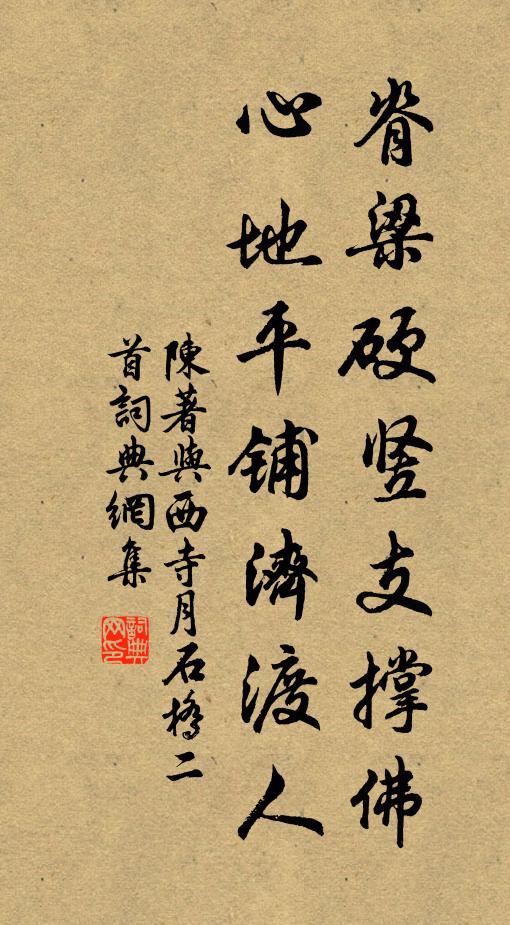 脊梁硬竖支撐佛
心地平鋪濟渡人
陳著與西寺月石橋二
首詞典網集
詞典网印